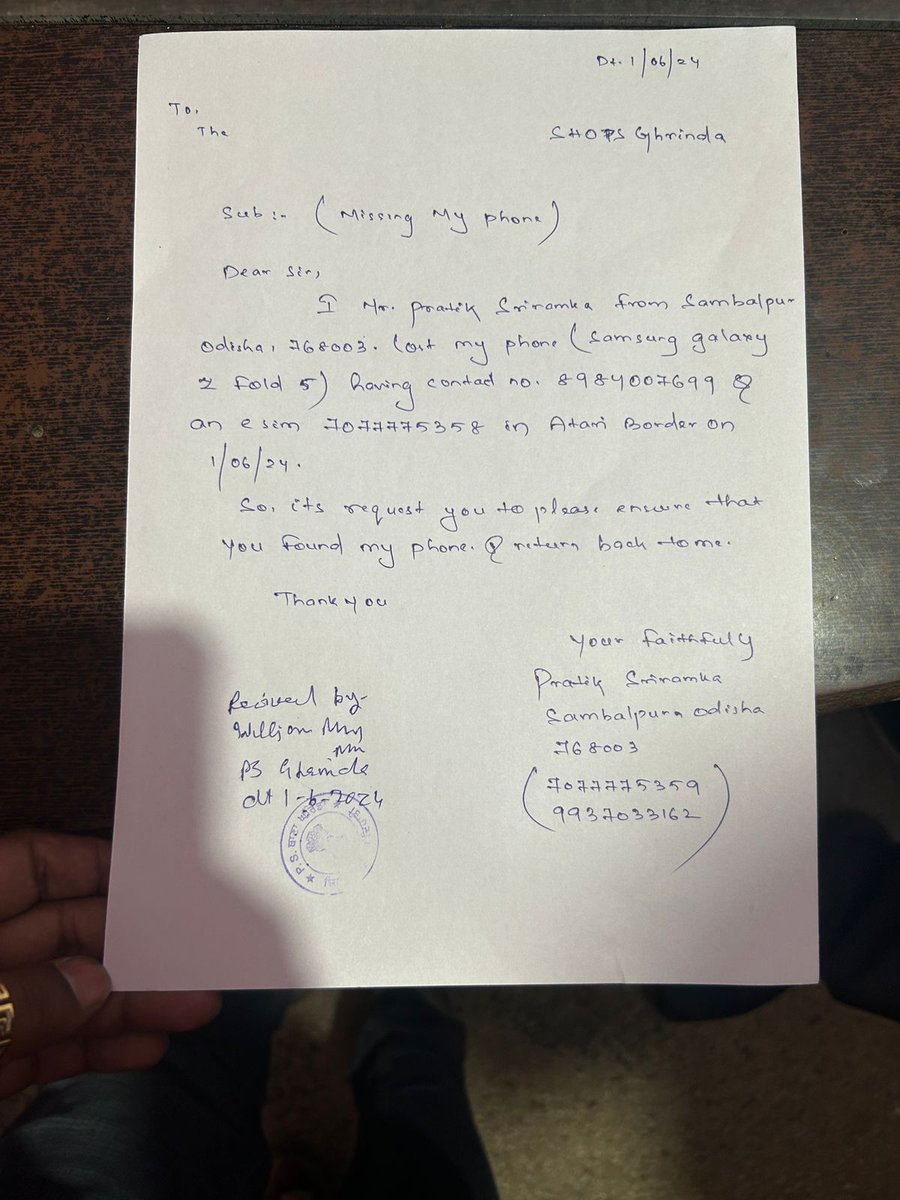 Dt. 1/06/24
To,
The
SHOPS Ghrinda
Sub:- (Missing My phone)
Dear Sir,
I Mr. Pratik Sriramka from Sambalpur
Odisha, 768003. lost my phone (Samsung galaxy
z fold 5) having contact no. 8984007699 &
an e sim 7077775358 in Atari Border on
1/06/24.
So, its request you to please ensure that
you found my phone. & return back to me.
Thank you
Your faithfuly
Pratik Sriramka
Sambalpur, Odisha
768003
(7077775359
9937033162)
Recived by-
PS Gharinda
dt 1-6-2024
P.S. ਥਾਣਾ